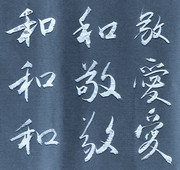 和和敬
和敬愛
和敬愛